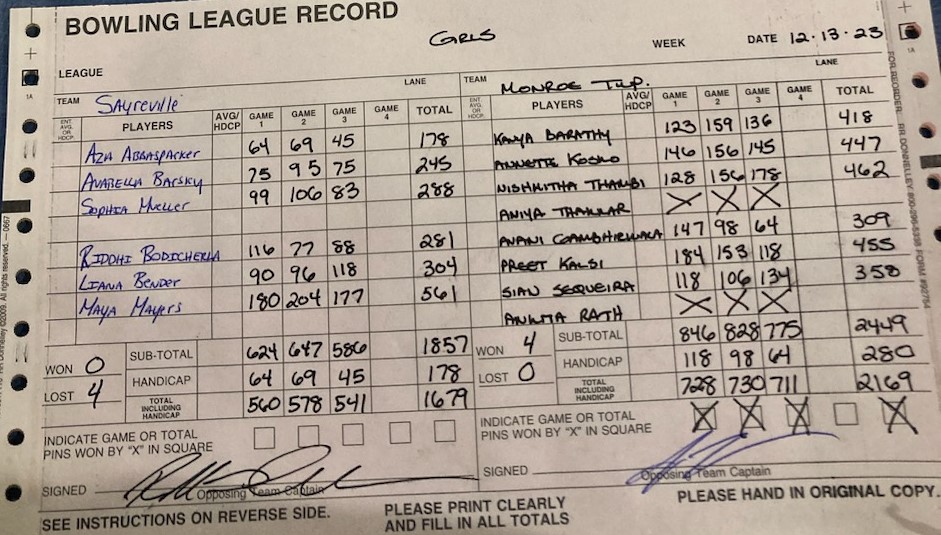 BOWLING LEAGUE RECORD
GIRLS
WEEK DATE 12.13.23
LEAGUE
LANE LANE
TEAM Sayreville TEAM MONROE TWP.
ENT. AVG. OR HDCP. PLAYERS AVG/ HDCP GAME 1 GAME 2 GAME 3 GAME 4 TOTAL ENT. AVG. OR HDCP. PLAYERS AVG/ HDCP GAME 1 GAME 2 GAME 3 GAME 4 TOTAL
64 69 45 178 KAVYA BARATHY 123 159 136 418
Anabella Barsky 75 95 75 245 ANNETTE 146 156 145 447
Sophia Mueller 99 106 83 288 NISHKITHA THAMBI 128 156 178 462
ANIYA THAKKAR X X X
Riddhi 116 77 88 281 147 98 64 309
Liana Bender 90 96 118 304 PREET KALSI 184 153 118 455
Maya Mayers 180 204 177 561 SIAN SEQUEIRA 118 106 134 358
ANKITA RATH X X X
WON 0 SUB-TOTAL 624 647 586 1857 WON 4 SUB-TOTAL 846 828 775 2449
LOST 4 HANDICAP 64 69 45 178 LOST 0 HANDICAP 118 98 64 280
TOTAL INCLUDING HANDICAP 560 578 541 1679 TOTAL INCLUDING HANDICAP 728 730 711 2169
INDICATE GAME OR TOTAL PINS WON BY "X" IN SQUARE INDICATE GAME OR TOTAL PINS WON BY "X" IN SQUARE X X X X
SIGNED Opposing Team Captain SIGNED Opposing Team Captain
SEE INSTRUCTIONS ON REVERSE SIDE. PLEASE PRINT CLEARLY AND FILL IN ALL TOTALS PLEASE HAND IN ORIGINAL COPY.